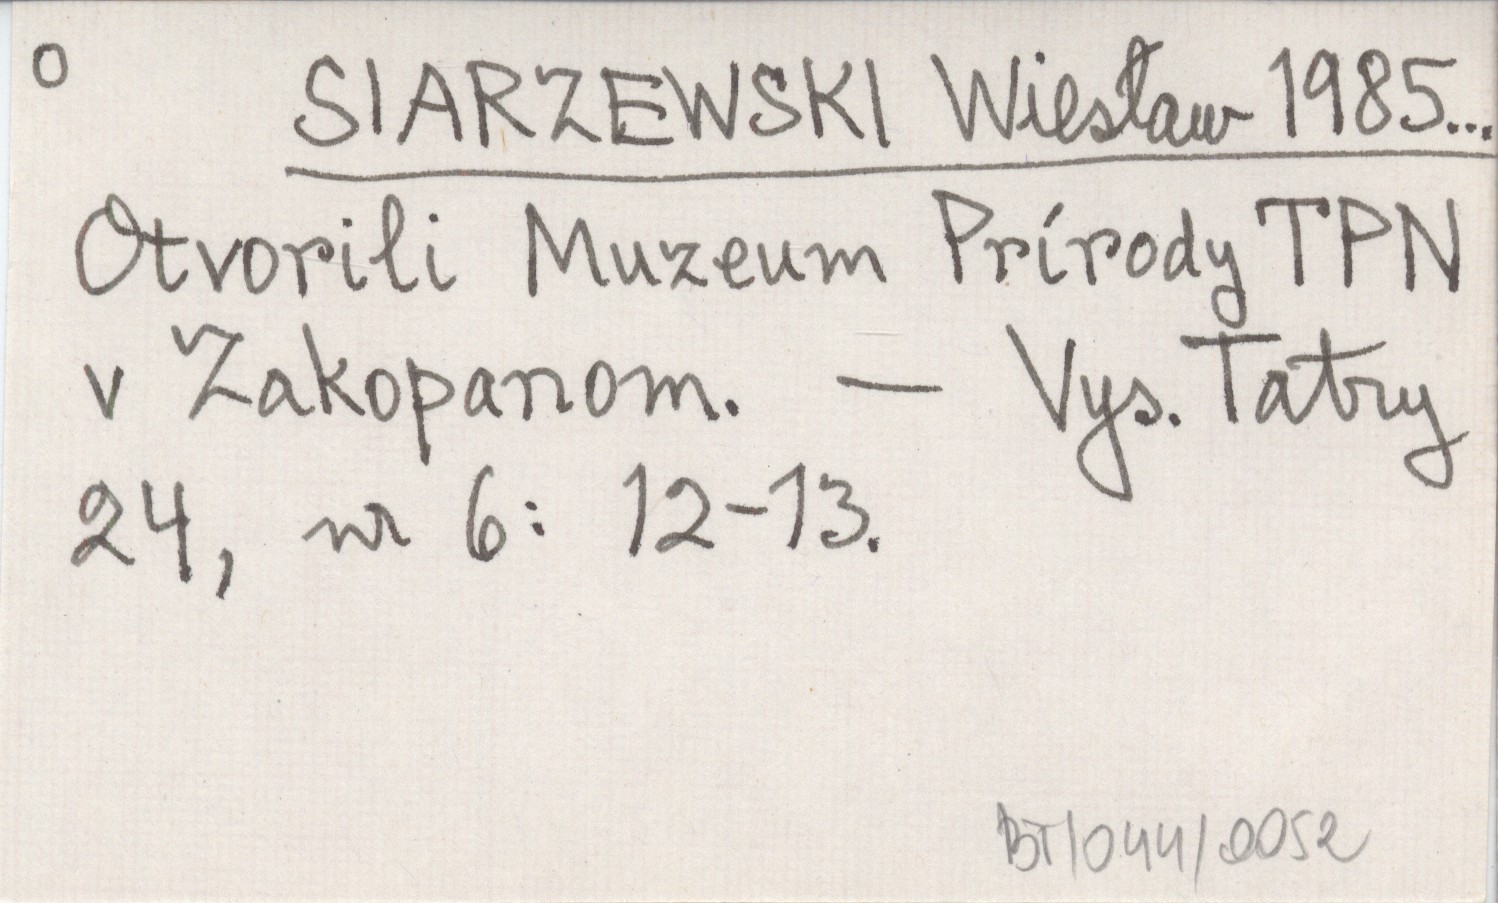 O
SIARZEWSKI Wiesław 1985...
Otvorili Muzeum Prírody TPN
v Zakopanom. — Vys. Tatry
24, nr 6: 12-13.
BT/044/0052